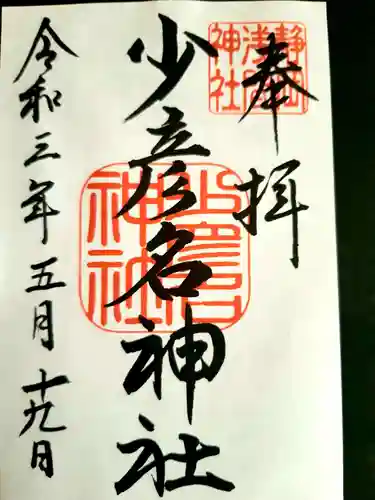 奉拝
静岡浅間神社
少彦名神社
少彦名神社
令和三年五月十九日